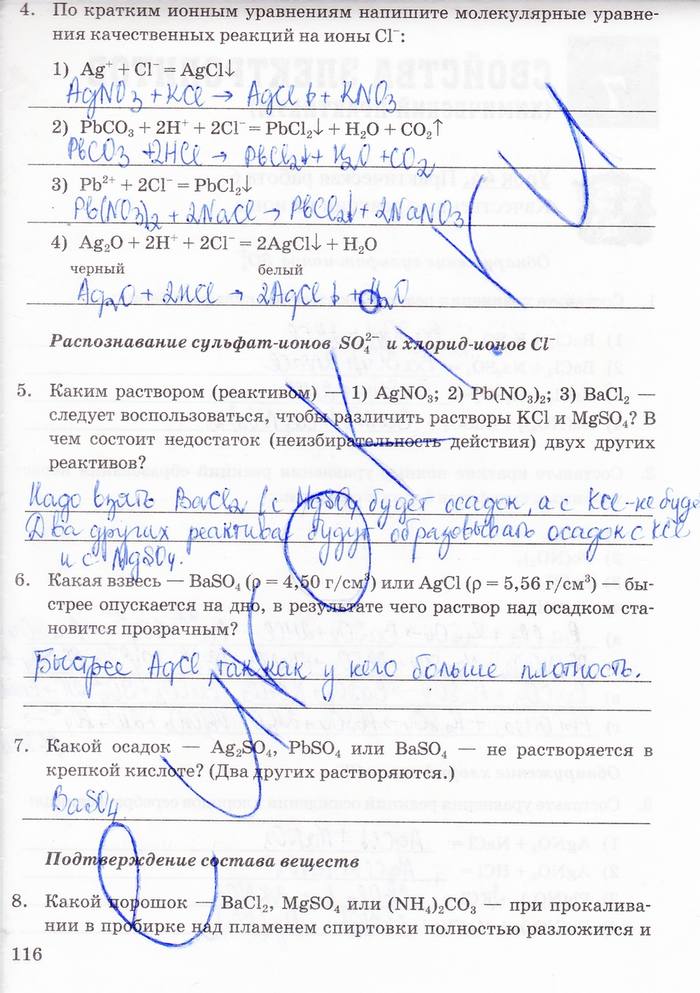 4. По кратким ионным уравнениям напишите молекулярные уравне-
ния качественных реакций на ионы Cl⁻:
1) Ag⁺ + Cl⁻ = AgCl↓
AgNO3 + KCl → AgCl↓ + KNO3
2) PbCO₃ + 2H⁺ + 2Cl⁻ = PbCl₂↓ + H₂O + CO₂↑
PbCO3 + 2HCl → PbCl2↓ + H2O + CO2
3) Pb²⁺ + 2Cl⁻ = PbCl₂↓
Pb(NO3)2 + 2NaCl → PbCl2↓ + 2NaNO3
4) Ag₂O + 2H⁺ + 2Cl⁻ = 2AgCl↓ + H₂O
черный белый
Ag2O + 2HCl → 2AgCl↓ + H2O
Распознавание сульфат-ионов SO₄²⁻ и хлорид-ионов Cl⁻
5. Каким раствором (реактивом) — 1) AgNO₃; 2) Pb(NO₃)₂; 3) BaCl₂ —
следует воспользоваться, чтобы различить растворы KCl и MgSO₄? В
чем состоит недостаток (неизбирательность действия) двух других
реактивов?
Надо взять BaCl2 (с MgSO4 будет осадок, а с KCl - не буде
Два других реактива будут образовывать осадок с KCl
и с MgSO4.
6. Какая взвесь — BaSO₄ (ρ = 4,50 г/см³) или AgCl (ρ = 5,56 г/см³) — бы-
стрее опускается на дно, в результате чего раствор над осадком ста-
новится прозрачным?
Быстрее AgCl, так как у него больше плотность.
7. Какой осадок — Ag₂SO₄, PbSO₄ или BaSO₄ — не растворяется в
крепкой кислоте? (Два других растворяются.)
BaSO4
Подтверждение состава веществ
8. Какой порошок — BaCl₂, MgSO₄ или (NH₄)₂CO₃ — при прокалива-
нии в пробирке над пламенем спиртовки полностью разложится и
116